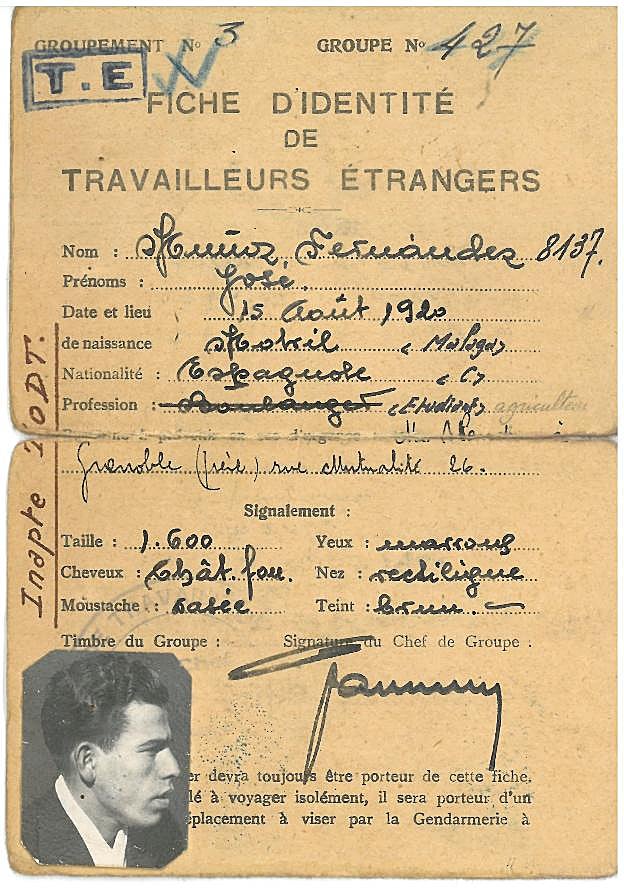 GROUPEMENT No 3 GROUPE No 427
T.E
FICHE D'IDENTITÉ
DE
TRAVAILLEURS ÉTRANGERS
Nom : Muñoz Fernández 8137.
Prénoms : José.
Date et lieu 15 Août 1920
de naissance Motril (Malaga)
Nationalité : Espagnole (C)
Profession : Boulanger (Etudiant) agriculteur
Personne à prévenir en cas d'urgence
Grenoble (Isère) rue Mutualité 26.
Signalement :
Taille : 1.600 Yeux : marrons
Cheveux : Chât. fon. Nez : rectiligne
Moustache : rasée Teint : brun.
Timbre du Groupe : Signature du Chef de Groupe :
er devra toujours être porteur de cette fiche.
lé à voyager isolément, il sera porteur d'un
éplacement à viser par la Gendarmerie à
Inapte TODT.